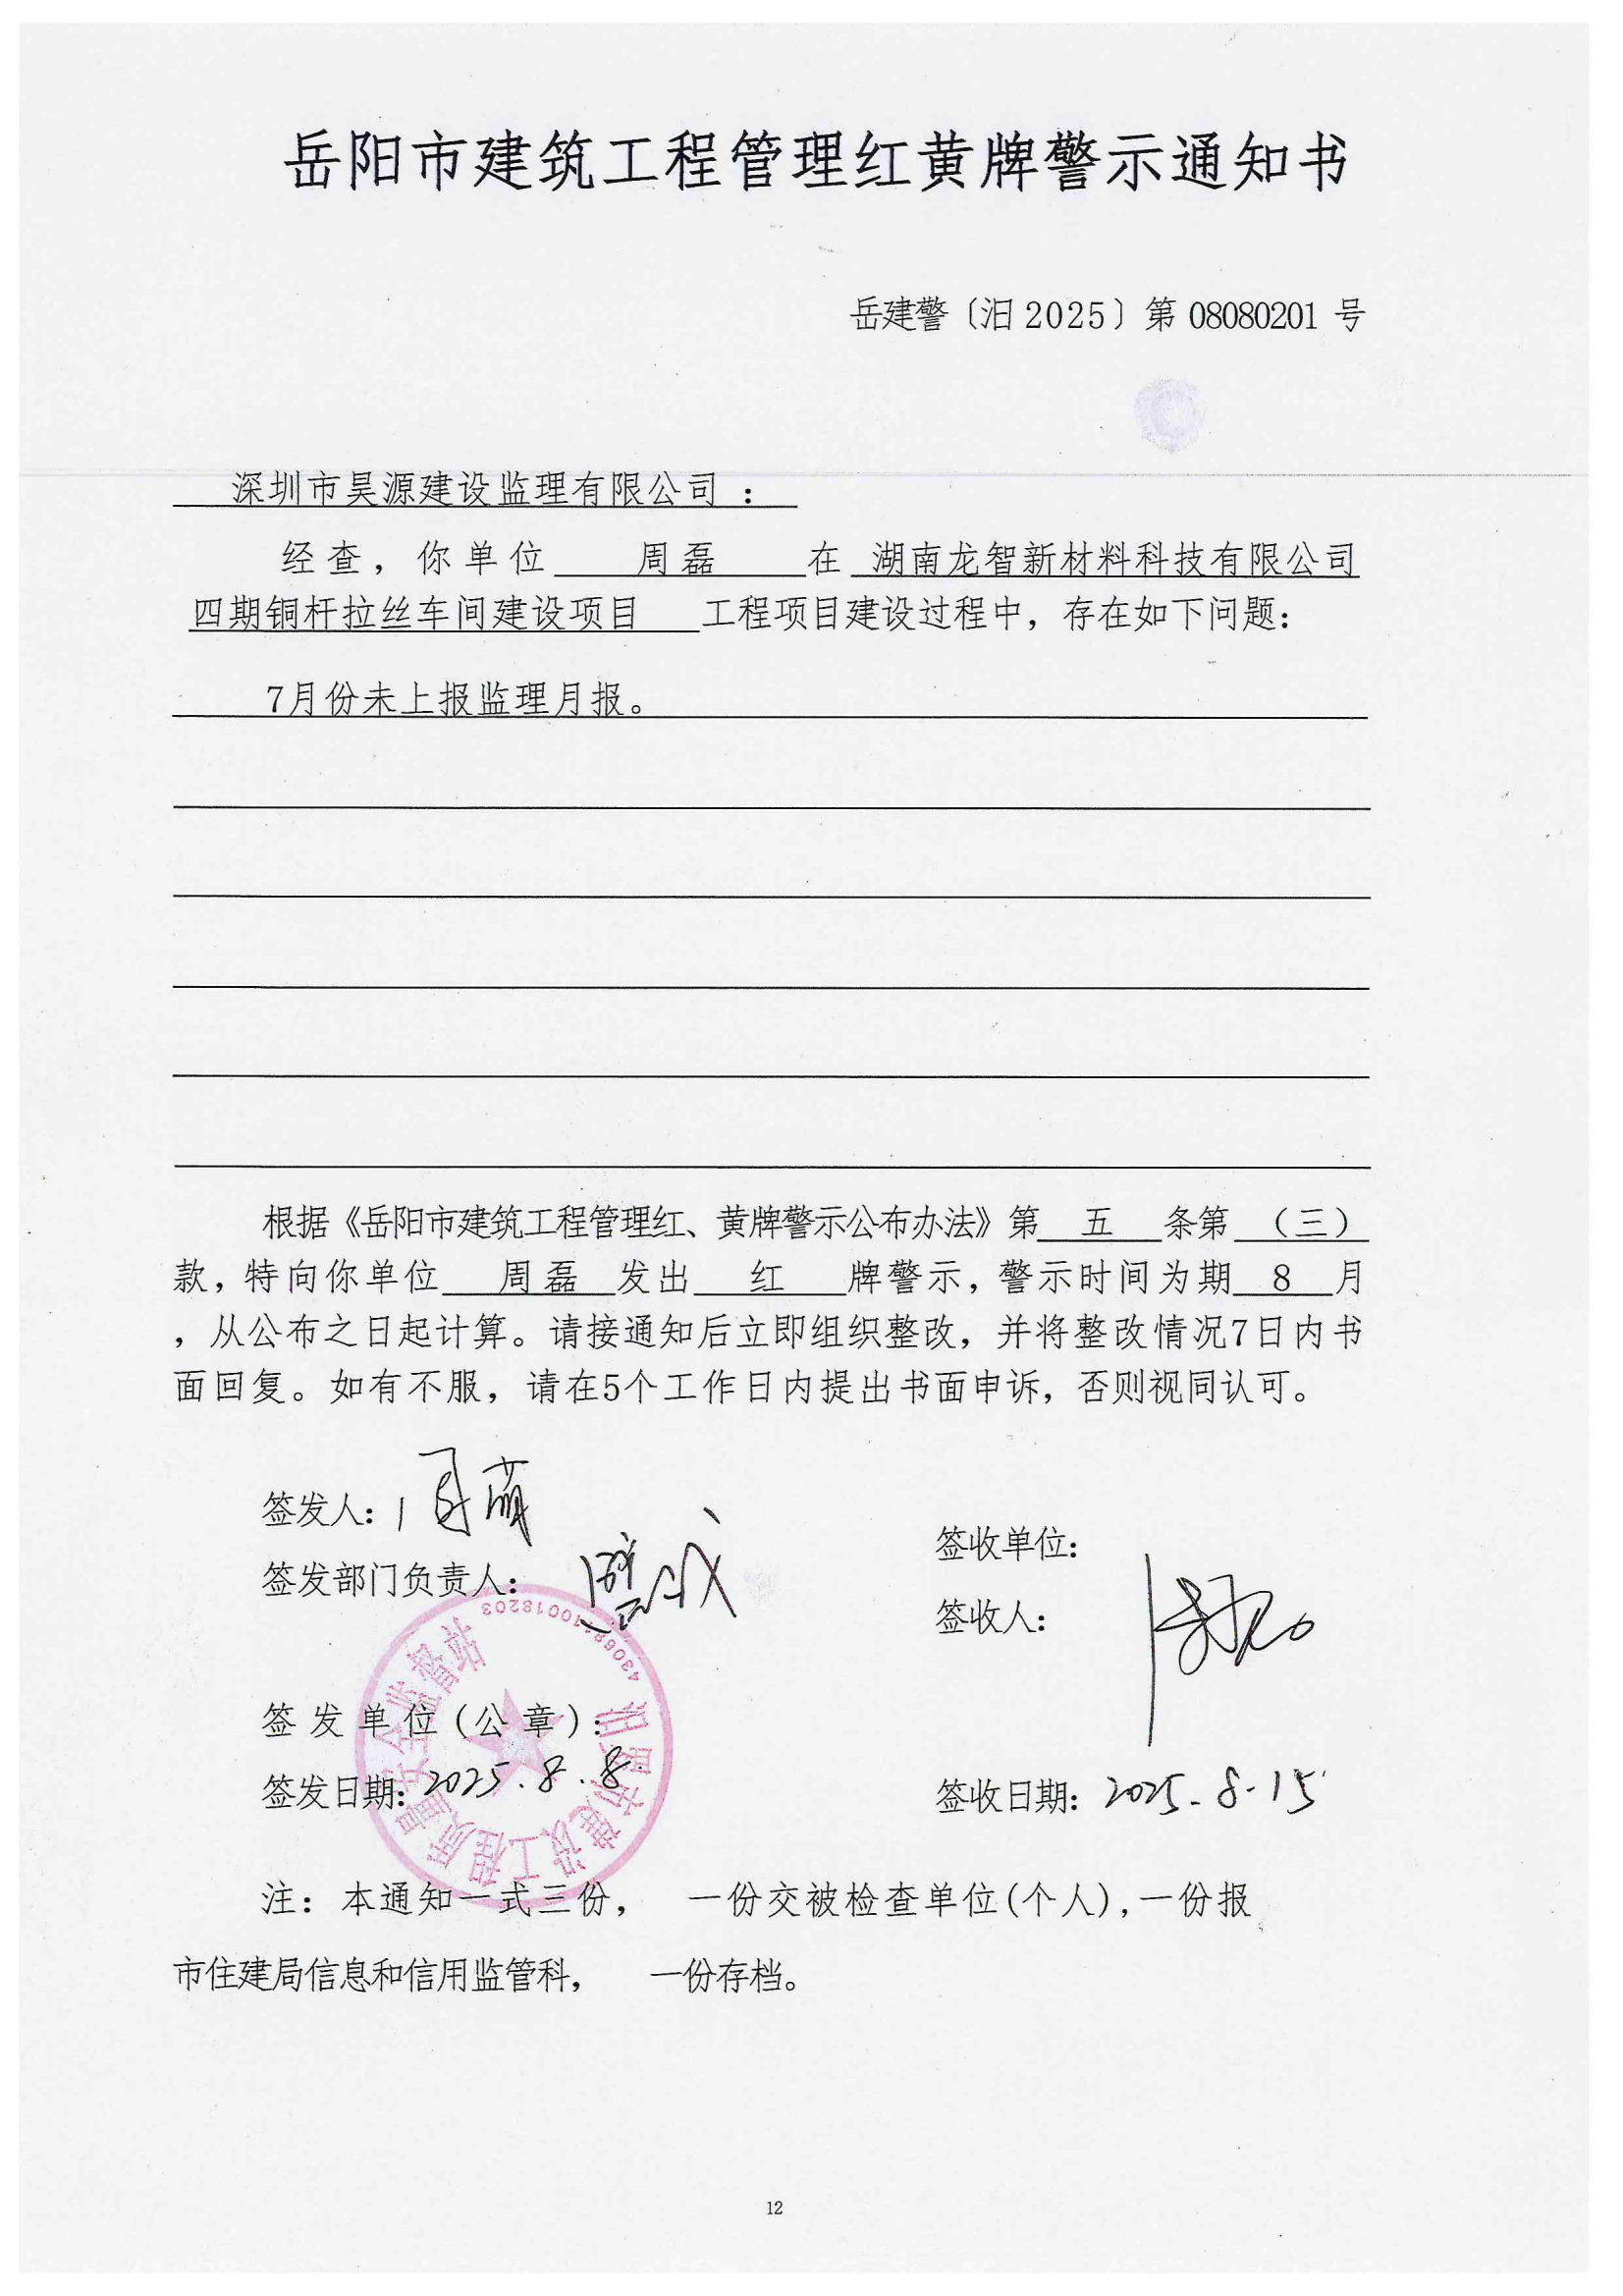 岳阳市建筑工程管理红黄牌警示通知书
岳建警〔汨2025〕第 08080201 号
深圳市昊源建设监理有限公司 :
经查，你单位 周磊 在 湖南龙智新材料科技有限公司
四期铜杆拉丝车间建设项目 工程项目建设过程中，存在如下问题：
7月份未上报监理月报。
根据《岳阳市建筑工程管理红、黄牌警示公布办法》第 五 条第 （三）
款，特向你单位 周磊 发出 红 牌警示，警示时间为期 8 月
，从公布之日起计算。请接通知后立即组织整改，并将整改情况7日内书
面回复。如有不服，请在5个工作日内提出书面申诉，否则视同认可。
签发人：
签发部门负责人：
签发单位(公章)：
签发日期：2025.8.8
签收单位：
签收人：
签收日期：2025.8.15
汨罗市建设工程质量安全监督站
注：本通知一式三份， 一份交被检查单位(个人),一份报
市住建局信息和信用监管科， 一份存档。
12